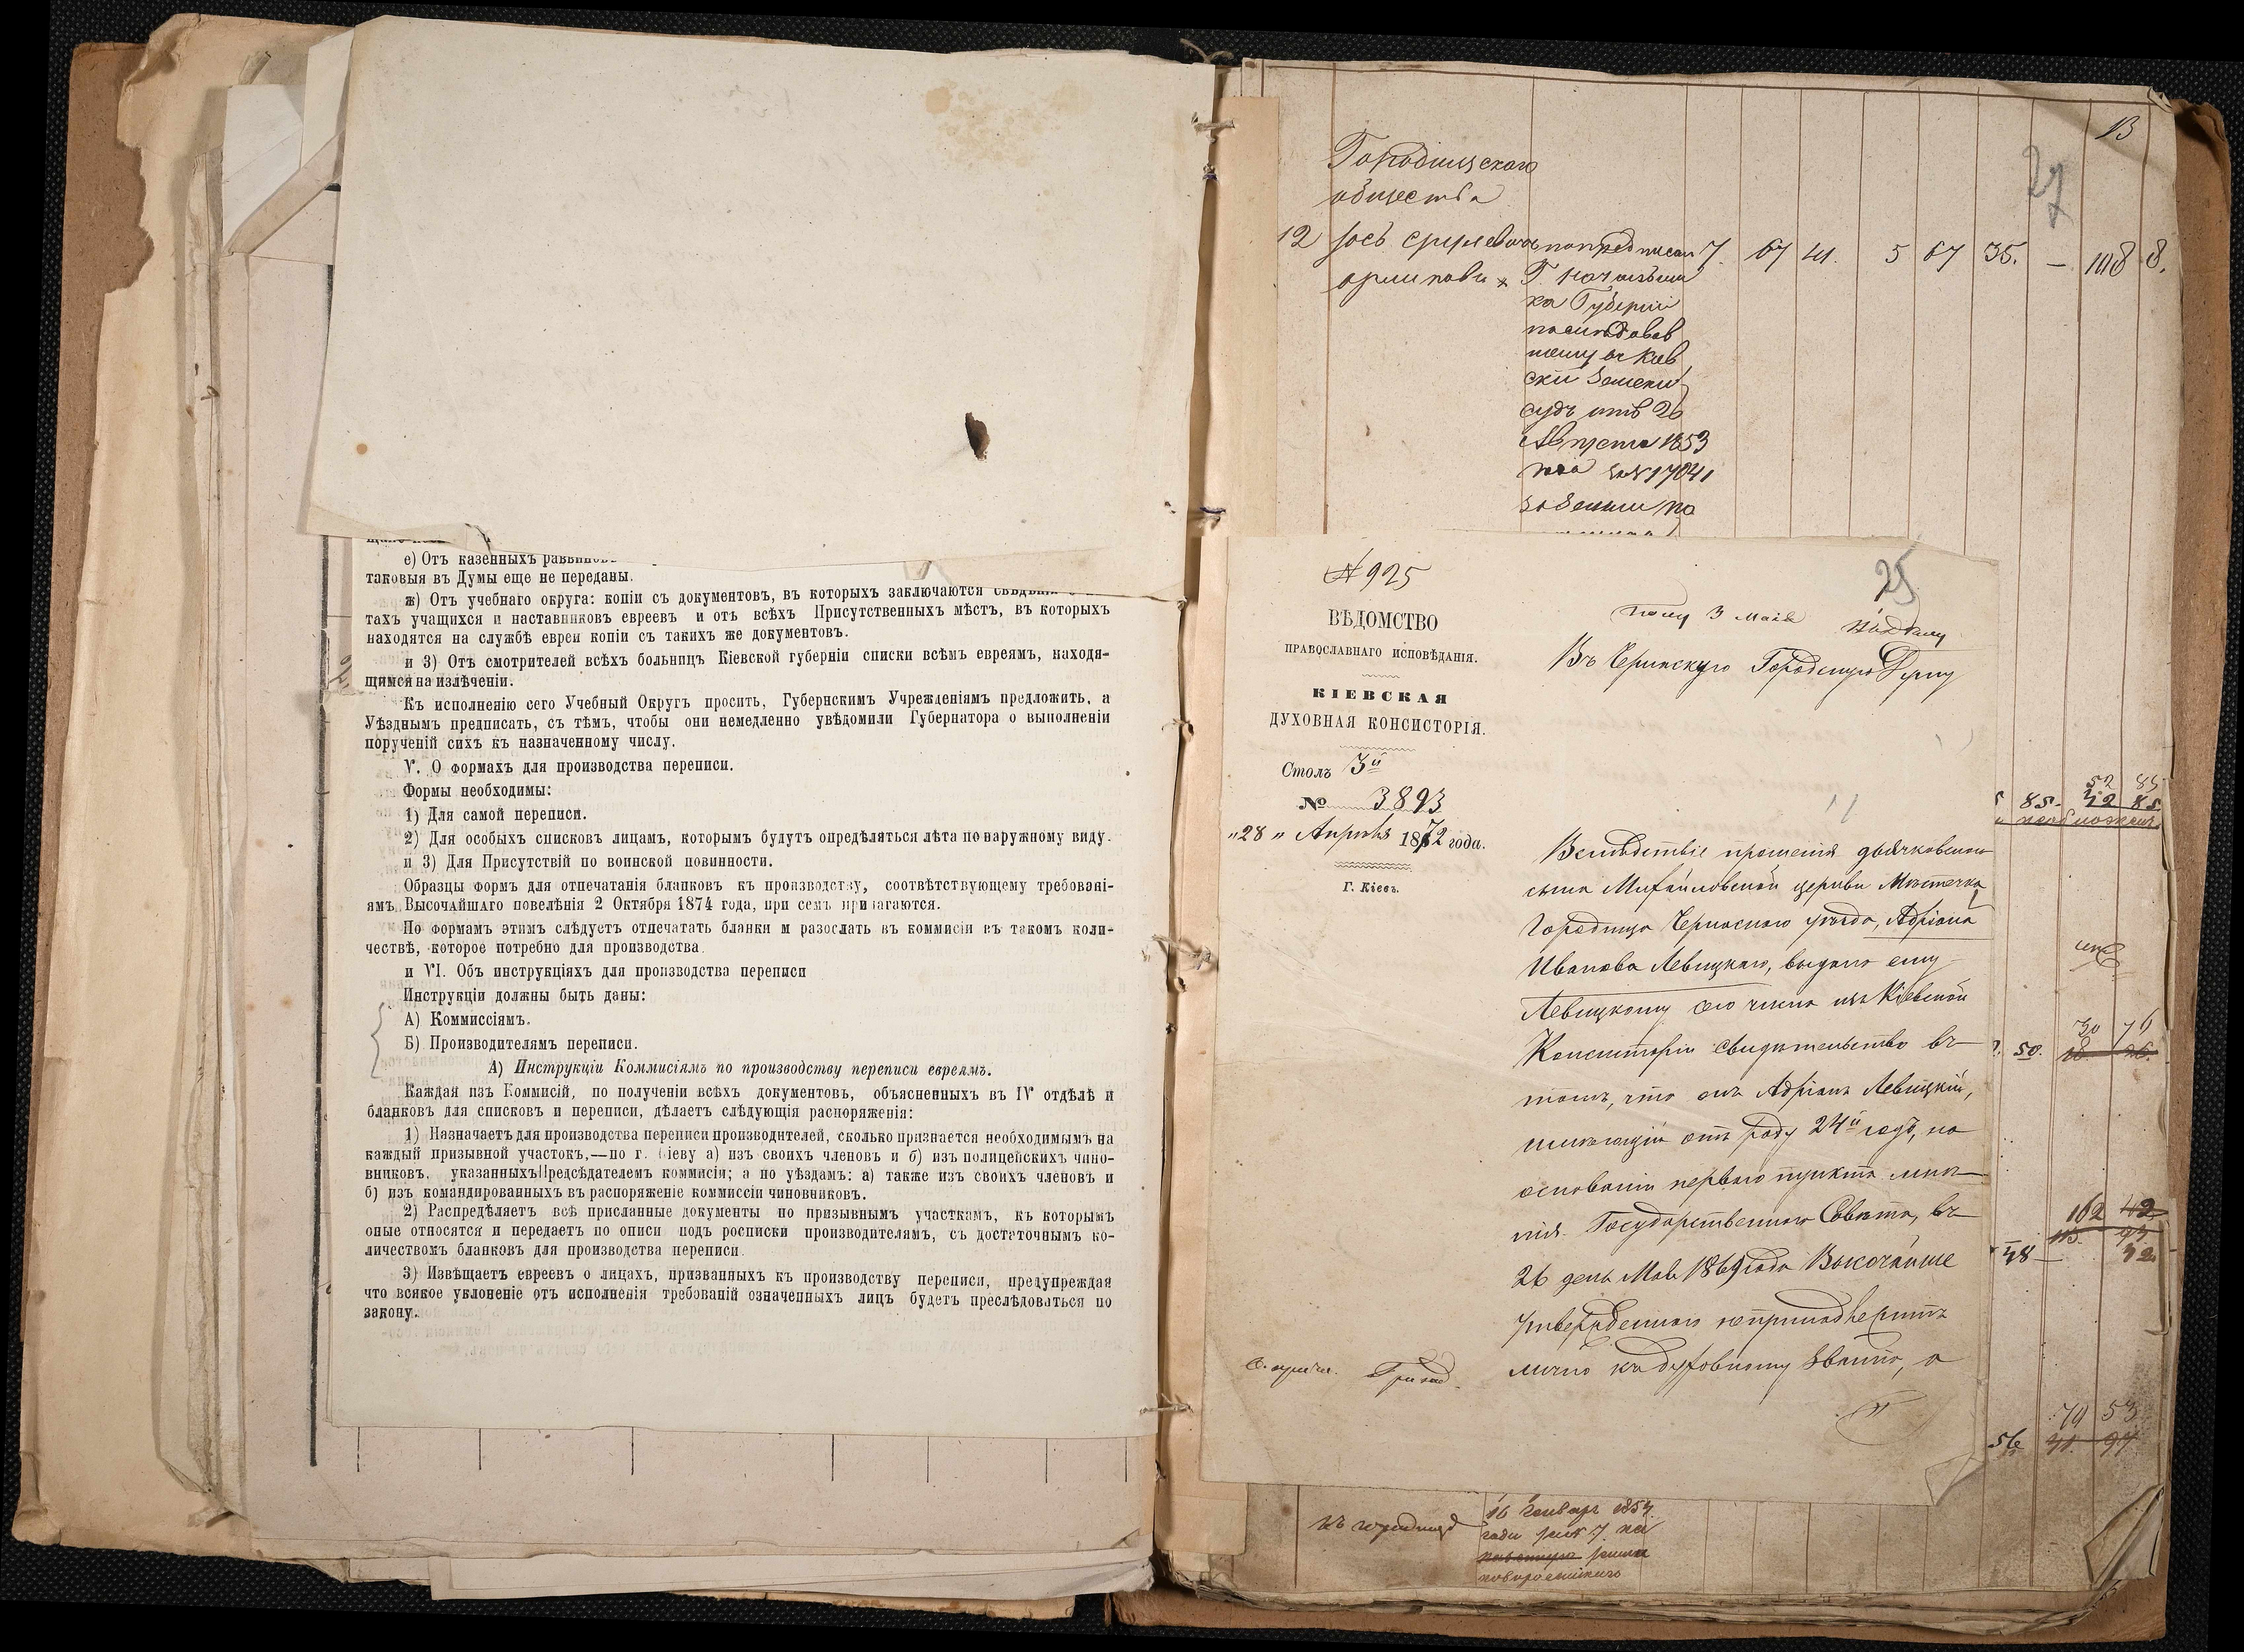 е) Отъ казенныхъ раввинов
таковыя въ Думы еще не переданы.
ж) Отъ учебнаго округа: копіи съ документовъ, въ которыхъ заключаются свѣдѣнія о
тахъ учащихся и наставниковъ евреевъ и отъ всѣхъ Присутственныхъ мѣстъ, въ которыхъ
находятся на службѣ евреи копіи съ такихъ же документовъ.
и 3) Отъ смотрителей всѣхъ больницъ Кіевской губерніи списки всѣмъ евреямъ, находя-
щимся на излѣченіи.
Къ исполненію сего Учебный Округъ просить, Губернскимъ Учрежденіямъ предложить, а
Уѣзднымъ предписать, съ тѣмъ, чтобы они немедленно увѣдомили Губернатора о выполненіи
порученій сихъ къ назначенному числу.
V. О формахъ для производства переписи.
Формы необходимы:
1) Для самой переписи.
2) Для особыхъ списковъ лицамъ, которымъ будутъ опредѣляться лѣта по наружному виду.
и 3) Для Присутствій по воинской повинности.
Образцы формъ для отпечатанія бланковъ къ производству, соотвѣтствующему требовані-
ямъ ВЫСОЧАЙШАГО повелѣнія 2 Октября 1874 года, при семъ прилагаются.
По формамъ этимъ слѣдуетъ отпечатать бланки м разослать въ коммисіи въ такомъ коли-
чествѣ, которое потребно для производства.
и VI. Объ инструкціяхъ для производства переписи
Инструкціи должны быть даны:
А) Коммиссіямъ.
Б) Производителямъ переписи.
А) Инструкціи Коммисіямъ по производству переписи евреямъ.
Каждая изъ Коммисій, по полученіи всѣхъ документовъ, объясненныхъ въ IV отдѣлѣ и
бланковъ для списковъ и переписи, дѣлаетъ слѣдующія распоряженія:
1) Назначаетъ для производства переписи производителей, сколько признается необходимымъ на
каждый призывной участокъ,—по г. Кіеву а) изъ своихъ членовъ и б) изъ полицейскихъ чино-
вниковъ, указанныхъ Предсѣдателемъ коммисіи; а по уѣздамъ: а) также изъ своихъ членовъ и
б) изъ командированныхъ въ распоряженіе коммиссіи чиновниковъ.
2) Распредѣляетъ всѣ присланные документы по призывнымъ участкамъ, къ которымъ
оные относятся и передаетъ по описи подъ росписки производителямъ, съ достаточнымъ ко-
личествомъ бланковъ для производства переписи.
3) Извѣщаетъ евреевъ о лицахъ, призванныхъ къ производству переписи, предупреждая
что всякое уклоненіе отъ исполненія требованій означенныхъ лицъ будетъ преслѣдоваться по
закону.
13
27
Городищскаго
общества
12 7. 67 41. 5 67 35. — 108 8.
Г. Начальни
ка Губерніи
послѣдовав
шему въ Кіев
скій Земскій
судъ отъ 26
Августа 1853
года за № 17041
№ 925
25
ВѢДОМСТВО
ПРАВОСЛАВНАГО ИСПОВѢДАНІЯ.
КІЕВСКАЯ
ДУХОВНАЯ КОНСИСТОРІЯ.
Столъ 3й
№ 3893
"28" Апрѣля 1872 года.
Г. Кіевъ.
Полу 3 Мая
Въ Черкаскую Городскую Думу
Вслѣдствіе прошенія дьячковскаго
сына Михайловской церкви мѣстечка
Городища Черкаскаго уѣзда, Адріана
Иванова Левицкаго, выдано ему
Левицкому сего числа изъ Кіевской
Консисторіи свидѣтельство въ
томъ, что онъ Адріанъ Левицкій,
имѣющій отъ роду 24й годъ, на
основаніи перваго пункта мнѣ-
нія Государственнаго Совѣта, въ
26 день Мая 1869 года Высочайше
утвержденнаго непринадлежитъ
лично къ духовному званію, а
85. 42 85
52 85
30 76
50.
162 42
48 — 42
79 53
56 41. 97
16 Генваря 1854
года